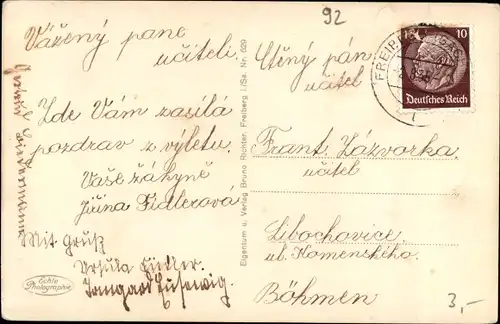 92
Vážený pane
učiteli.
Zde Vám zasílá
pozdrav z výletu
Vaše žákyně
Jiřina Fidlerová
Mit Gruß
Ursula Fiedler.
Irmgard
Echte
Photographie
Eigentum u. Verlag Bruno Richter, Freiberg i/Sa. Nr. 629
Ctěný pán
učitel
Frant. Zázvorka
učitel
Libochovice.
ul. Komenského.
Böhmen
10
Deutsches Reich
3,-